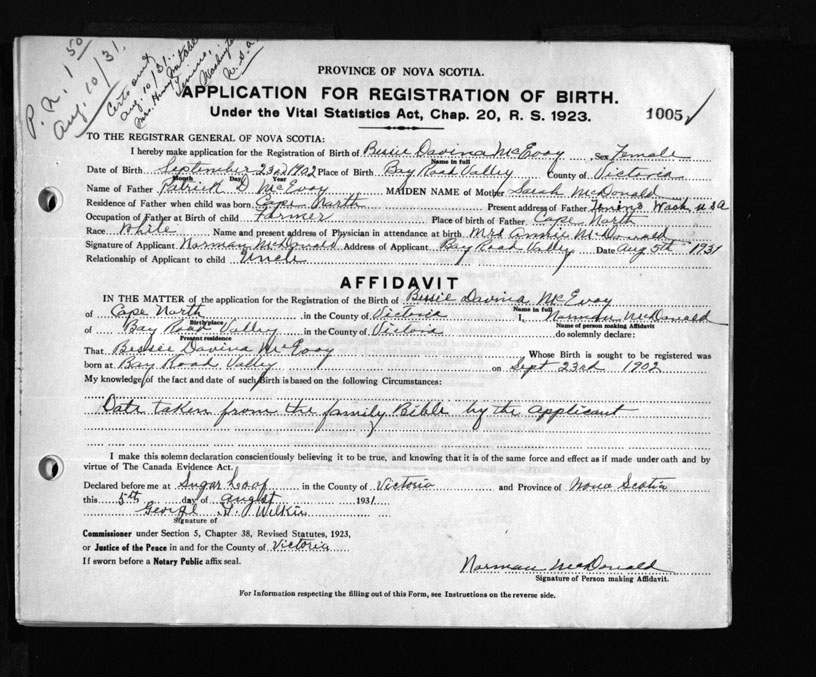 P.N. 1 50
Aug. 10/31.
Certs and
Aug 10/31.
Mrs. Henry
Tenino,
Washington
U.S.A.
PROVINCE OF NOVA SCOTIA.
APPLICATION FOR REGISTRATION OF BIRTH.
Under the Vital Statistics Act, Chap. 20, R. S. 1923.
1005
TO THE REGISTRAR GENERAL OF NOVA SCOTIA:
I hereby make application for the Registration of Birth of Bessie Davina McEvoy Sex Female
Name in full
Date of Birth September 23rd 1902 Place of Birth Bay Road Valley County of Victoria
Month Day Year
Name of Father Patrick D McEvoy MAIDEN NAME of Mother Sarah McDonald
Residence of Father when child was born Cape North Present address of Father Tenino Wash U.S.A
Occupation of Father at Birth of child Farmer Place of birth of Father Cape North
Race White Name and present address of Physician in attendance at birth Mrs Annie McDonald
Signature of Applicant Norman McDonald Address of Applicant Bay Road Valley Date Aug 5th 1931
Relationship of Applicant to child Uncle
AFFIDAVIT
IN THE MATTER of the application for the Registration of the Birth of Bessie Davina McEvoy
Name in full
of Cape North in the County of Victoria I, Norman McDonald
Birthplace Name of person making Affidavit
of Bay Road Valley in the County of Victoria do solemnly declare:
Present residence
That Bessie Davina McEvoy Whose Birth is sought to be registered was
born at Bay Road Valley on Sept 23rd 1902
My knowledge of the fact and date of such Birth is based on the following Circumstances:
Date taken from the family Bible by the applicant
I make this solemn declaration conscientiously believing it to be true, and knowing that it is of the same force and effect as if made under oath and by
virtue of The Canada Evidence Act.
Declared before me at Sugar Loaf in the County of Victoria and Province of Nova Scotia
this 5th day of August 1931
George Wilkie
Signature of
Commissioner under Section 5, Chapter 38, Revised Statutes, 1923,
or Justice of the Peace in and for the County of Victoria
If sworn before a Notary Public affix seal.
Norman McDonald
Signature of Person making Affidavit.
For Information respecting the filling out of this Form, see Instructions on the reverse side.